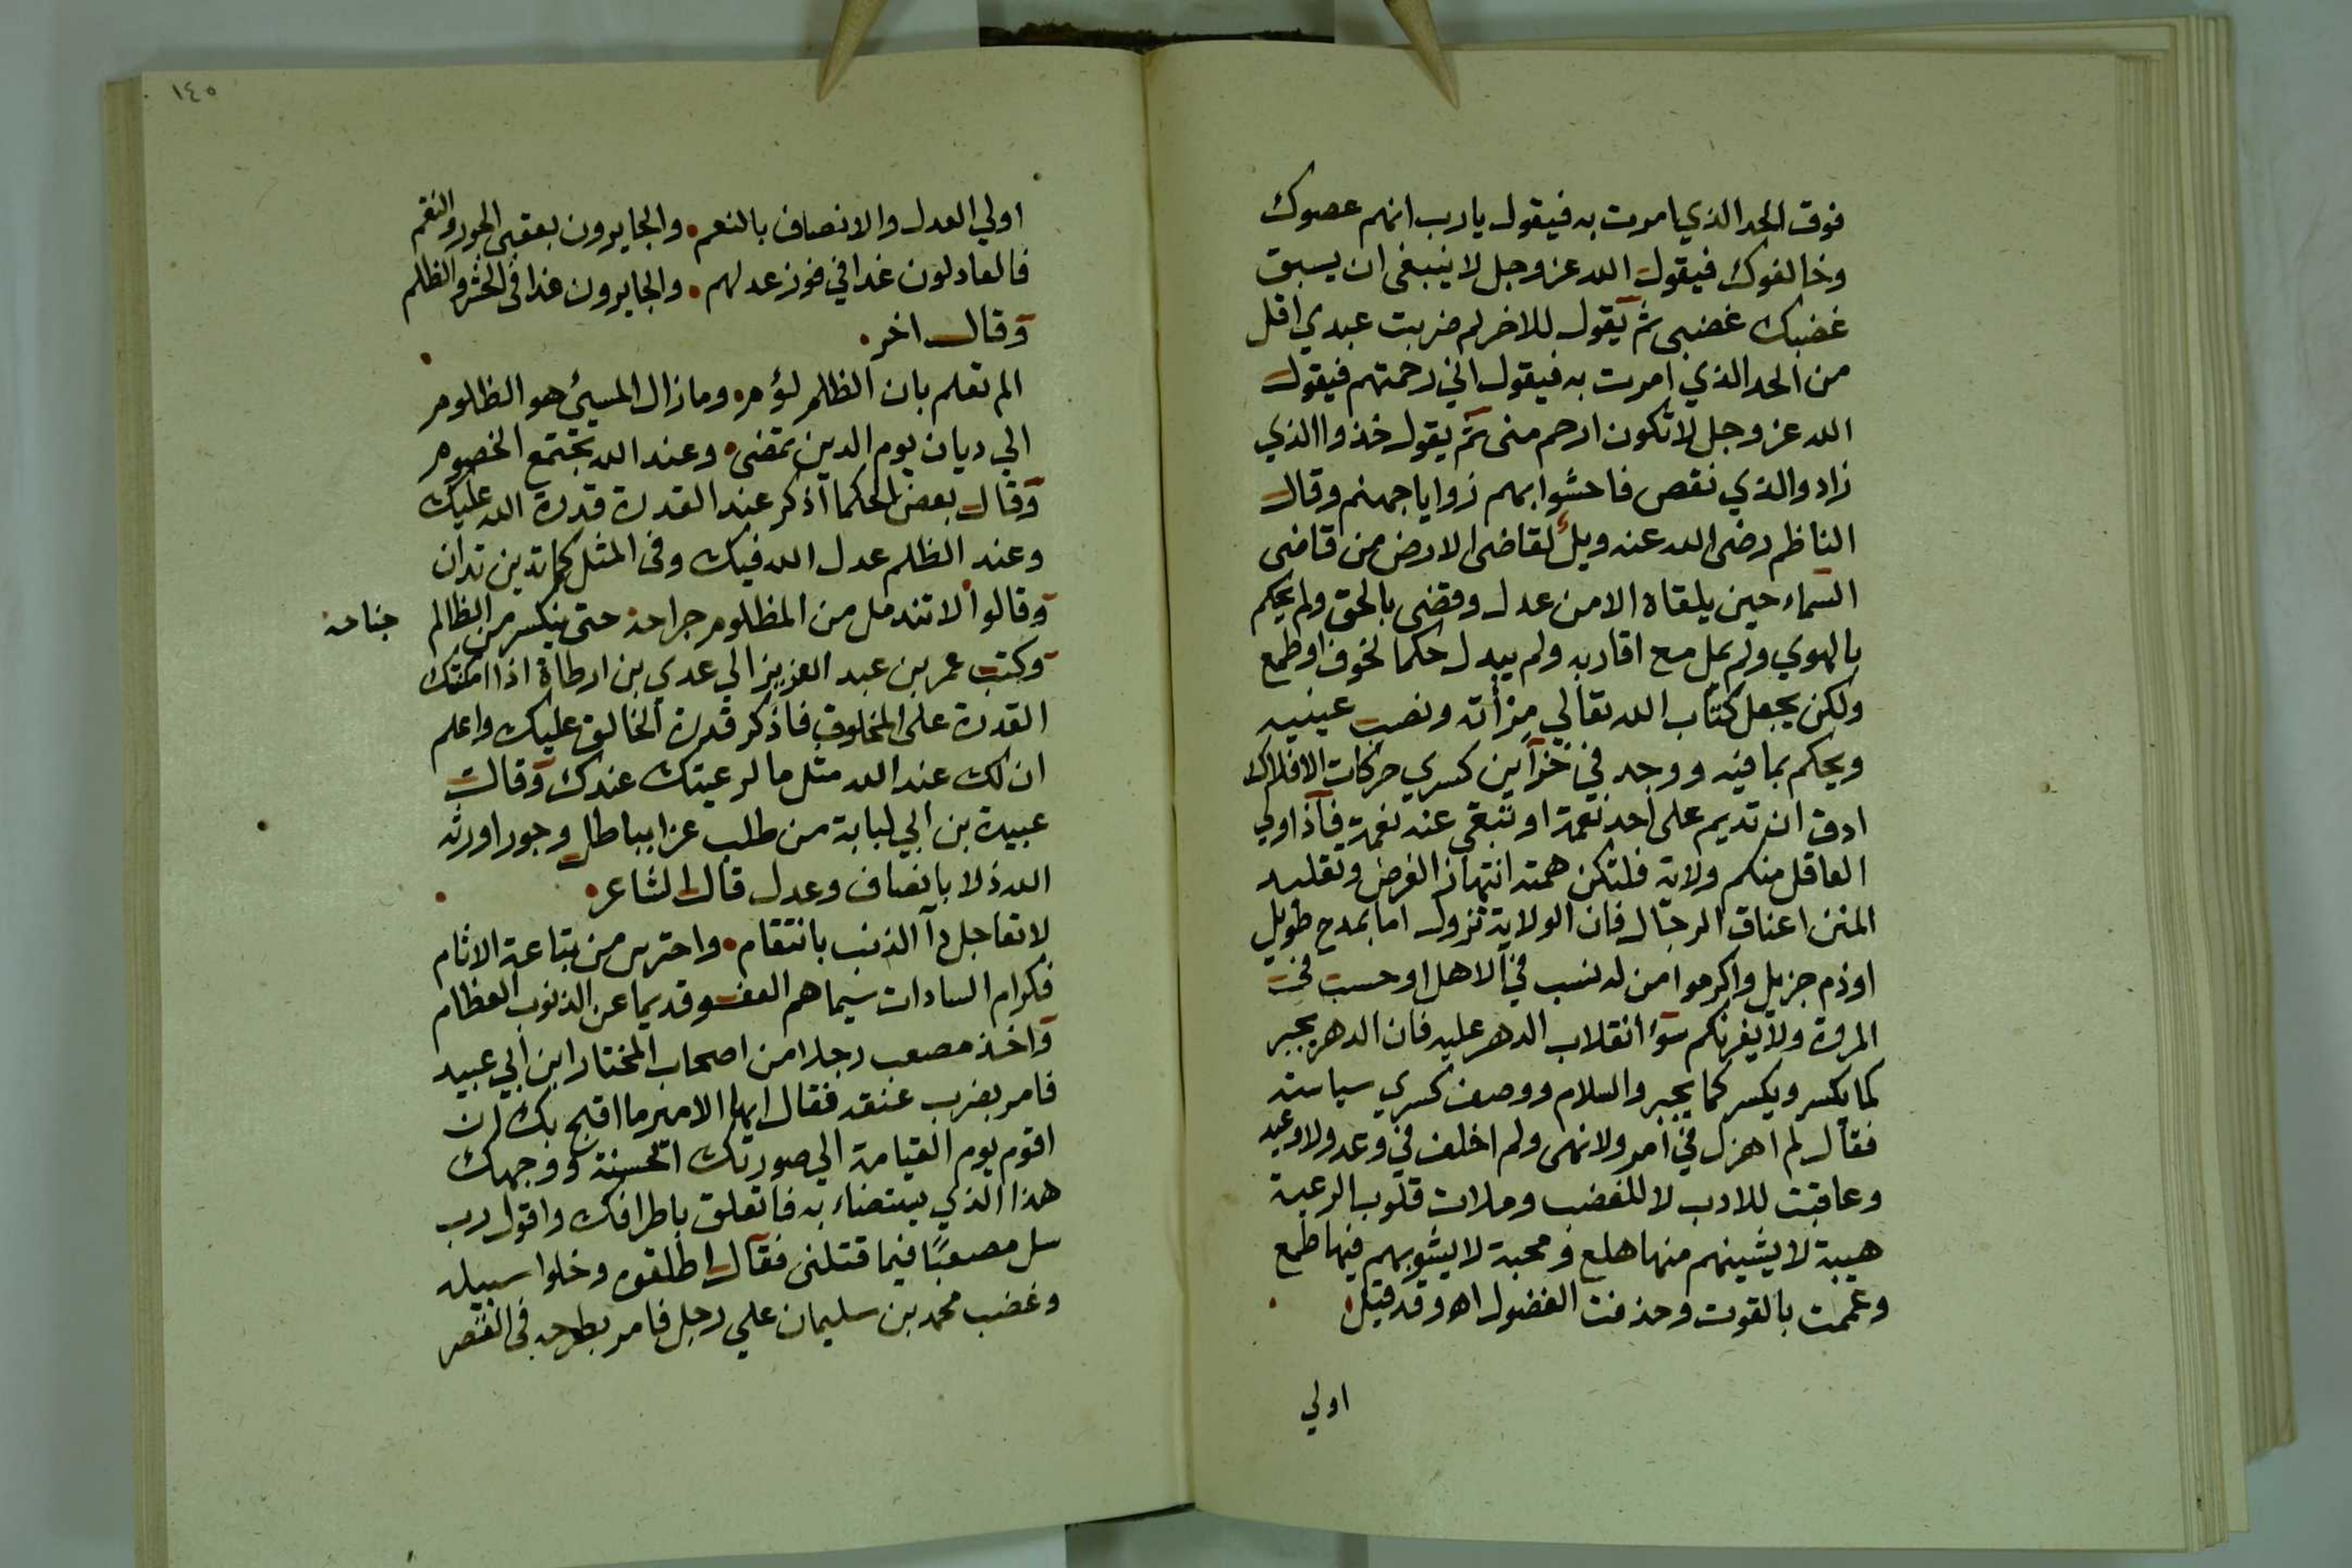 فوق الحد الذي امرت به فيقول يا رب انهم عصوك
وخالفوك فيقول الله عز وجل لا ينبغي ان يسبق
غضبك غضبى ثم يقول للاخر لم ضربت عبدي اقل
من الحد الذي امرت به فيقول اني رحمتهم فيقول
الله عز وجل لا تكون ارحم منى ثم يقول خذوا الذي
زاد والذي نقص فاحشوا بهم زوايا جهنم وقال
الناظم رضى الله عنه ويل لقاضى الارض من قاضى
السماء حين يلقاه الا من عدل وقضى بالحق ولم يحكم
بالهوي ولم يمل مع اقاربه ولم يبدل حكما لخوف او طمع
ولكن يجعل كتاب الله تعالي مرأته ونصب عينيه
ويحكم بما فيه ووجد في خزآين كسري حركات الافلاك
ادق ان تديم على احد نعمة او تبقى عند نعمة فآذا ولي
العاقل منكم ولاية فلتكن همته انتهاز الفرض وتقليد
المنن اعناق الرجال فان الولاية تزول اما بمدح طويل
او ذم جزيل واكرموا من له نسب في الاهل او حسب في
المروة ولا يغرنكم سؤ انقلاب الدهر عليه فان الدهر يجبر
كما يكسر ويكسر كما يجبر والسلام ووصف كسري سياسته
فقال لم اهزل في امر ولا نهى ولم اخلف في وعد ولا وعيد
وعاقبت للادب لا للغضب وملات قلوب الرعية
هيبة لا يشينهم منها هلع ومحبة لا يشوبهم فيها طمع
وعممت بالقوت وحذفت الفضول اه وقد قيل
اولي
١٤٥
اولي العدل والانصاف بالنعم والجايرون بعقبى الجور والنقم
فالعادلون غدا في فوز عدلهم والجايرون غدا فى الحشر والظلم
وقال اخر
الم تعلم بان الظلم لؤم وما زال المسيئ هو الظلوم
الي ديان يوم الدين تمضى وعند الله تجتمع الخصوم
وقال بعض الحكما اذكر عند القدرة قدرة الله عليك
وعند الظلم عدل الله فيك وفى المثل كما تدين تدان
وقالوا لا تندمل من المظلوم جراحة حتى ينكسر من الظالم جناحة
وكتب عمر بن عبد العزيز الي عدي بن ارطاة اذا امكنتك
القدرة على المخلوق فاذكر قدرة الخالق عليك واعلم
ان لك عند الله مثل ما لرعيتك عندك وقال
عبيدة بن ابي لبابة من طلب عزا بباطل وجور اورثه
الله ذلا بانصاف وعدل قال الشاعر
لا تعاجل ذا الذنب بانتقام واحترس من تباعة الاثام
فكرام السادات سيماهم العفو قديما عن الذنوب العظام
واخذ مصعب رجلا من اصحاب المختار ابن ابي عبيد
فامر بضرب عنقه فقال ايها الامير ما اقبح بك ان
اقوم يوم القيامة الي صورتك الحسنة ووجهك
هذا الذي يستضاء به فاتعلق باطرافك واقول رب
سل مصعبًا فيما قتلنى فقال اطلقوه وخلوا سبيله
وغضب محمد بن سليمان علي رجل فامر بطرحه فى القصر